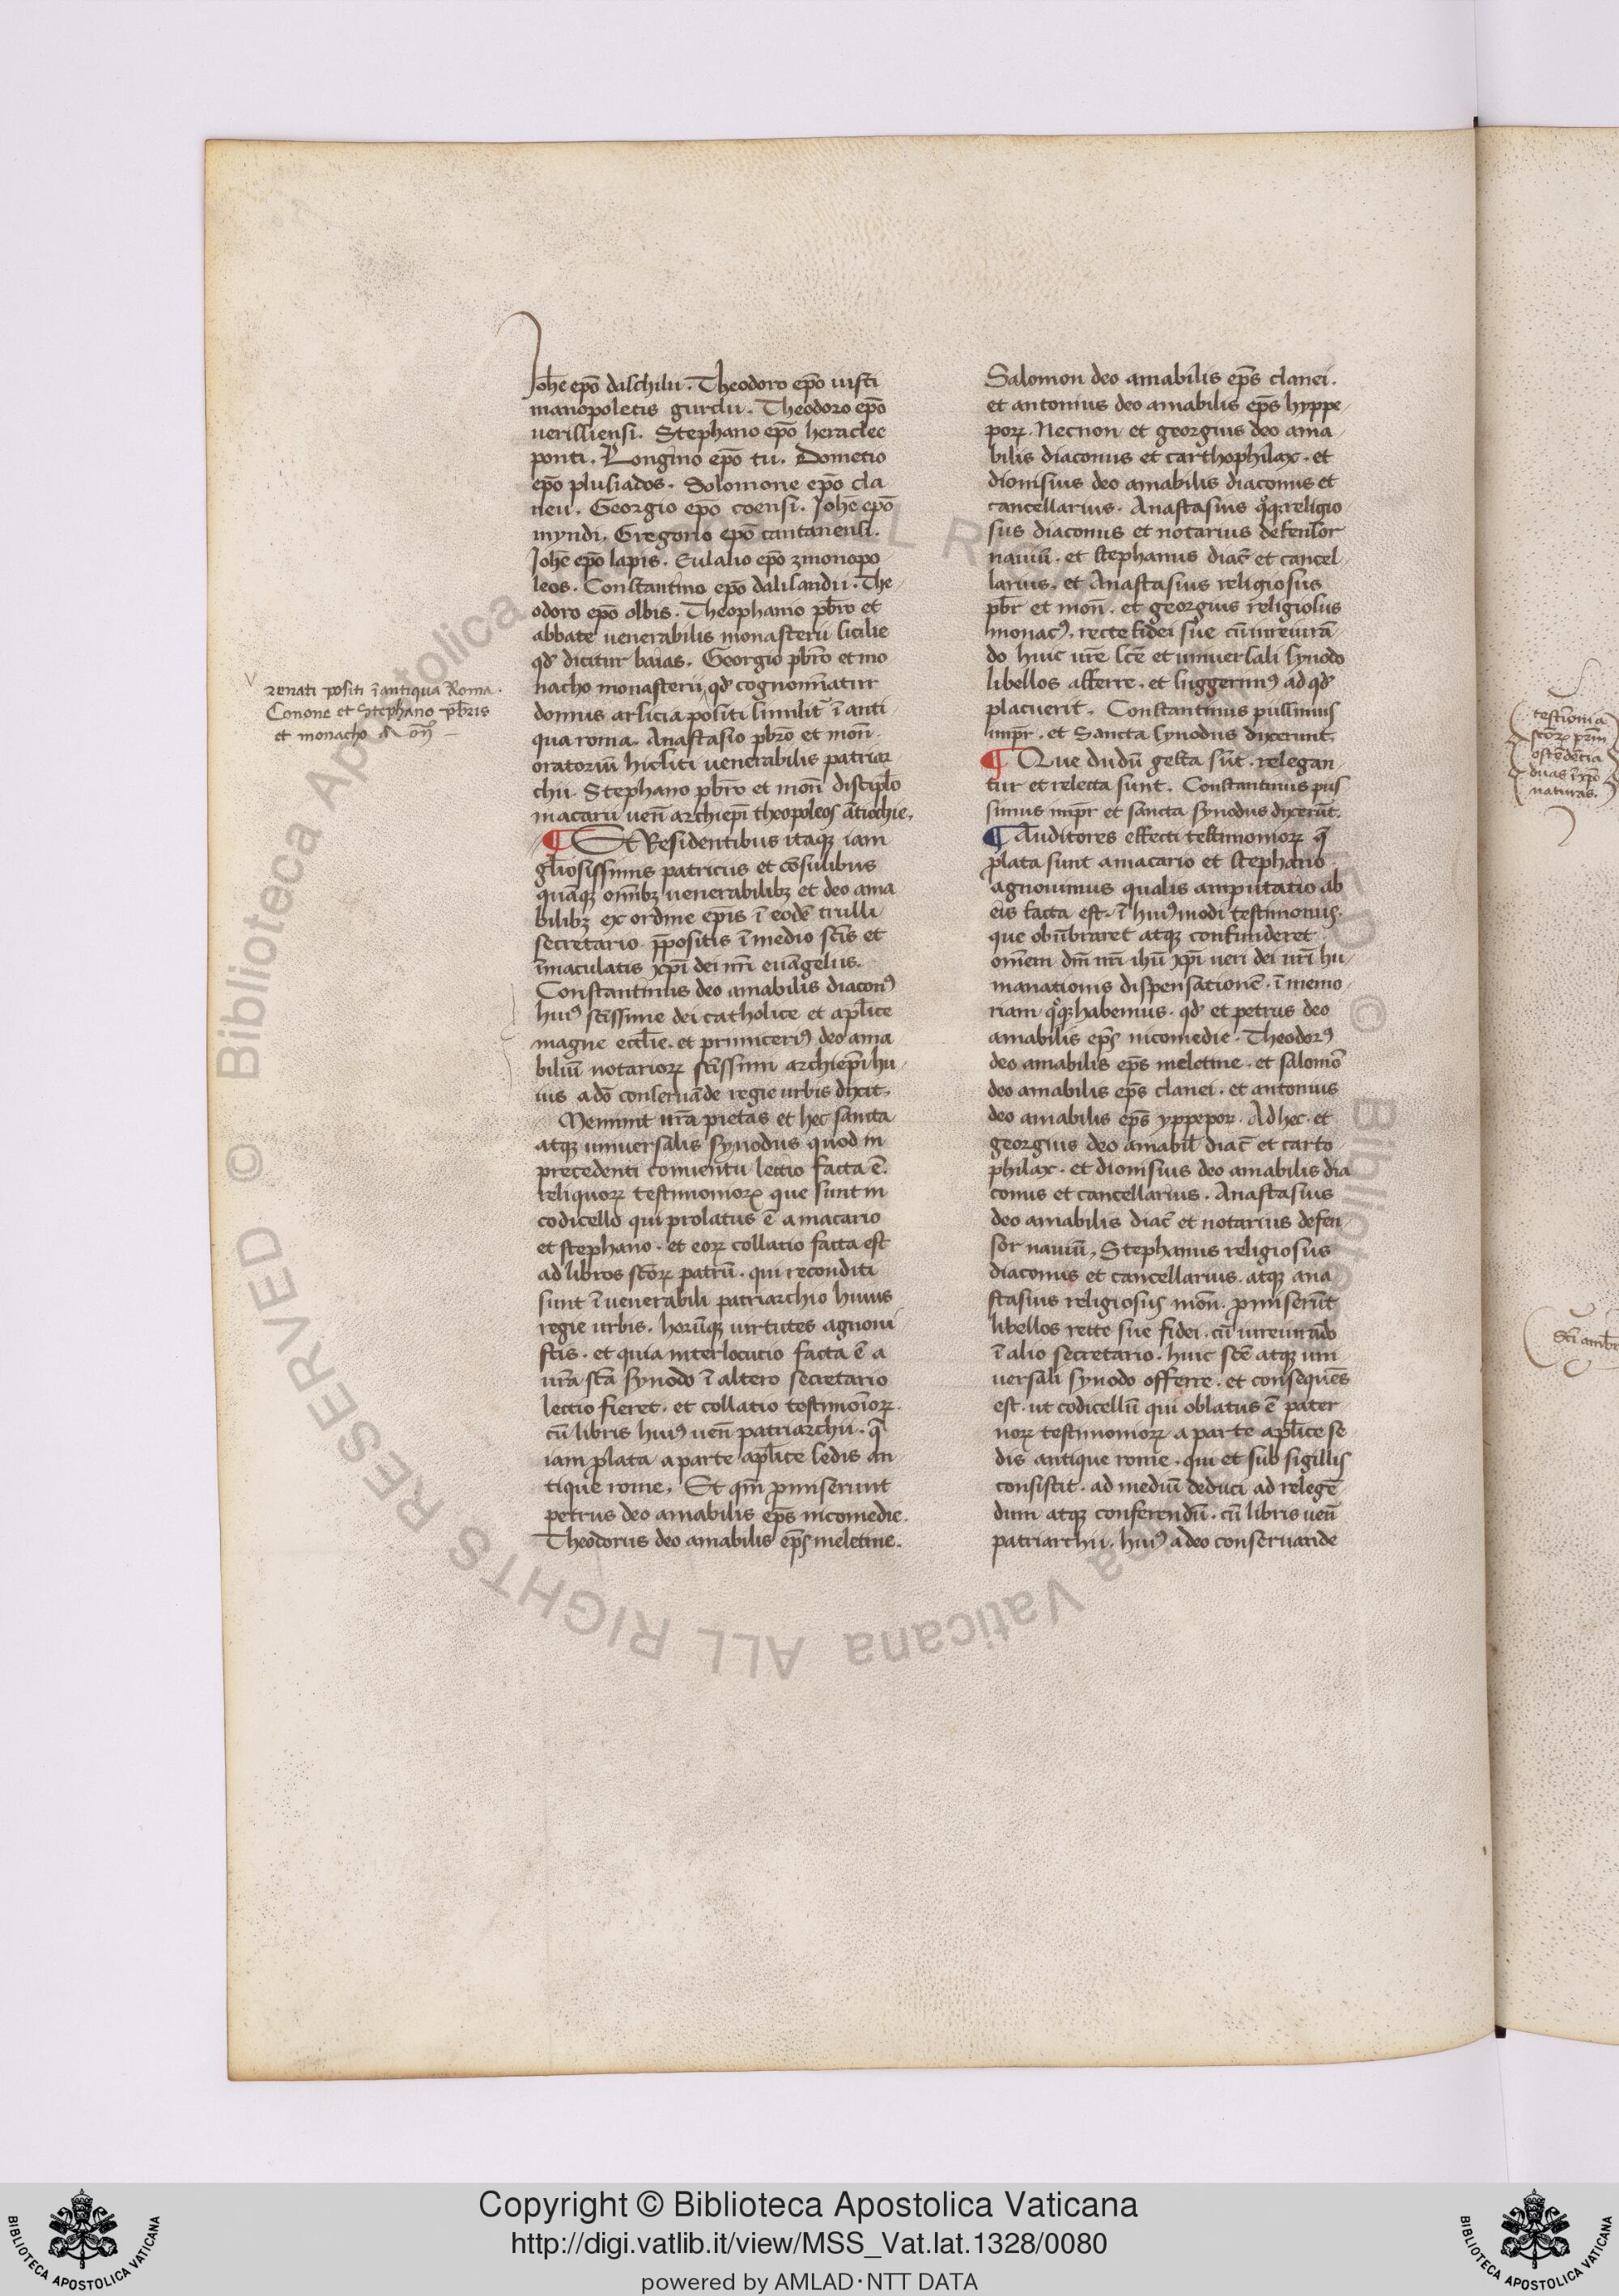 Joh̄e ep̄o dalchilii. Theodoro ep̄o iusti
manopoletis gurdii. Theodoro ep̄o
uerissiensi. Stephano ep̄o heraclee
ponti. Longino ep̄o tii. Dometio
ep̄o plusiados. Solomone ep̄o cla
neu. Georgio ep̄o coensi. Joh̄e ep̄o
myndi. Gregorio ep̄o cantanensi.
Joh̄e ep̄o lapis. Eulalio ep̄o zmonopo
leos. Constantino ep̄o dalisandii. The
odoro ep̄o olbis. Theophanio pb̄ro et
abbate uenerabilis monasterii sicilie
qd̄ dicitur baias. Georgio pb̄ro et mo
nacho monasterii qd̄ cognoīatur
domus arsicia positi similit̄ ī anti
qua roma. Anastasio pb̄ro et mon̄.
oratoriū hicliti uenerabilis patriar
chii. Stephano pb̄ro et mon̄ discip̄lo
macarii uen̄ archiep̄i theopoleos ātiochie.
¶ Et Residentibus itaqꝫ iam
gl̄iosissimis patriciis et cōsulibus
quāqꝫ om̄ibꝫ uenerabilibꝫ et deo ama
bilibꝫ ex ordine ep̄is ī eodē trulli
secretario. p̄positis ī medio sc̄is et
īmaculatis xp̄i dei nr̄i euāgeliis.
Constantinus deo amabilis diaconꝰ
huiꝰ sc̄issime dei catholice et apl̄ice
magne eccl̄ie. et primiceriꝰ deo ama
biliū notarioꝝ sc̄issimi archiep̄i hu
ius a dō conseruāde regie urbis dixit.
Meminit ur̄a pietas et hec sancta
atqꝫ uniuersalis synodus quod in
precedenti conuentu lectio facta ē.
reliquoꝝ testimonioꝝ que sunt in
codicello qui prolatus ē a macario
et stephano. et eoꝝ collatio facta est
ad libros sc̄oꝝ patrū. qui reconditi
sunt ī uenerabili patriarchio huius
regie urbis. horūqꝫ uirtutes agnoui
stis. et quia interlocutio facta ē a
ur̄a sc̄a synodo ī altero secretario
lectio fieret. et collatio testimonioꝝ.
cū libris huiꝰ uen̄ patriarchii. q̄
iam plata a parte apl̄ice sedis an
tique rome. Et qm̄ pmiserunt
petrus deo amabilis ep̄s nicomedie.
Theodorus deo amabilis ep̄s meletine.
renati positi ī antiqua Roma.
Conone et Stephano pb̄ris
et monacho
Salomon deo amabilis ep̄s clanei.
et antonius deo amabilis ep̄s hyppe
poꝝ. Necnon et georgius deo ama
bilis diaconus et carthophilax. et
dionisius deo amabilis diaconus et
cancellarius. Anastasius qͦqꝫ religio
sus diaconus et notarius defensor
nauiū. et stephanus diac̄ et cancel
larius. et Anastasius religiosus
pb̄r et mon̄. et georgius religiosus
monacꝰ. recte fidei sue cū iureiurā
do huic ur̄e sc̄e et uniuersali synodo
libellos afferre. et suggerimꝰ ad qd̄
placuerit. Constantinus pussimus
imp̄r. et Sancta synodus dixerunt.
¶ Que dudū gesta sūt. relegan
tur et relecta sunt. Constantinus pus
simus imp̄r et sancta synodus dixerūt.
¶ Auditores effecti testimonioꝝ q̄
plata sunt a macario et stephano
agnouimus qualis amputatio ab
eis facta est. ī huiꝰmodi testimoniis.
que obūbraret atqꝫ confunderet
om̄em dn̄i nr̄i ihū xp̄i ueri dei nr̄i hu
manationis dispensationē. ī memo
riam qͦqꝫ habemus. qd̄ et petrus deo
amabilis ep̄s nicomedie. Theodorꝰ
deo amabilis ep̄s meletine. et salomō
deo amabilis ep̄s clanei. et antonius
deo amabilis ep̄s yppepoꝝ. Ad hec. et
georgius deo amabil̄ diac̄ et carto
philax. et dionisius deo amabilis dia
conus et cancellarius. Anastasius
deo amabilis diac̄ et notarius defen
sor nauiū, Stephanus religiosus
diaconus et cancellarius. atqꝫ ana
stasius religiosus mon̄. pmiserūt
libellos recte sue fidei. cū iureiurādo
ī alio secretario. huic sc̄e atqꝫ uni
uersali synodo offerre. et consequēs
est. ut codicellū qui oblatus ē pater
noꝝ testimonioꝝ a parte apl̄ice se
dis antique rome. qui et sub sigillis
consistit. ad mediū deduci ad relegē
dum atqꝫ conferendū. cū libris uen̄
patriarchii. huiꝰ a deo conseruande
testīonia
sc̄oꝝ pr̄m
ostēdētia
duas ī xp̄o
naturas.
Copyright © Biblioteca Apostolica Vaticana
http://digi.vatlib.it/view/MSS_Vat.lat.1328/0080
powered by AMLAD·NTT DATA
BIBLIOTECA APOSTOLICA VATICANA
BIBLIOTECA APOSTOLICA VATICANA
© Biblioteca Apostolica Vaticana ALL RIGHTS RESERVED